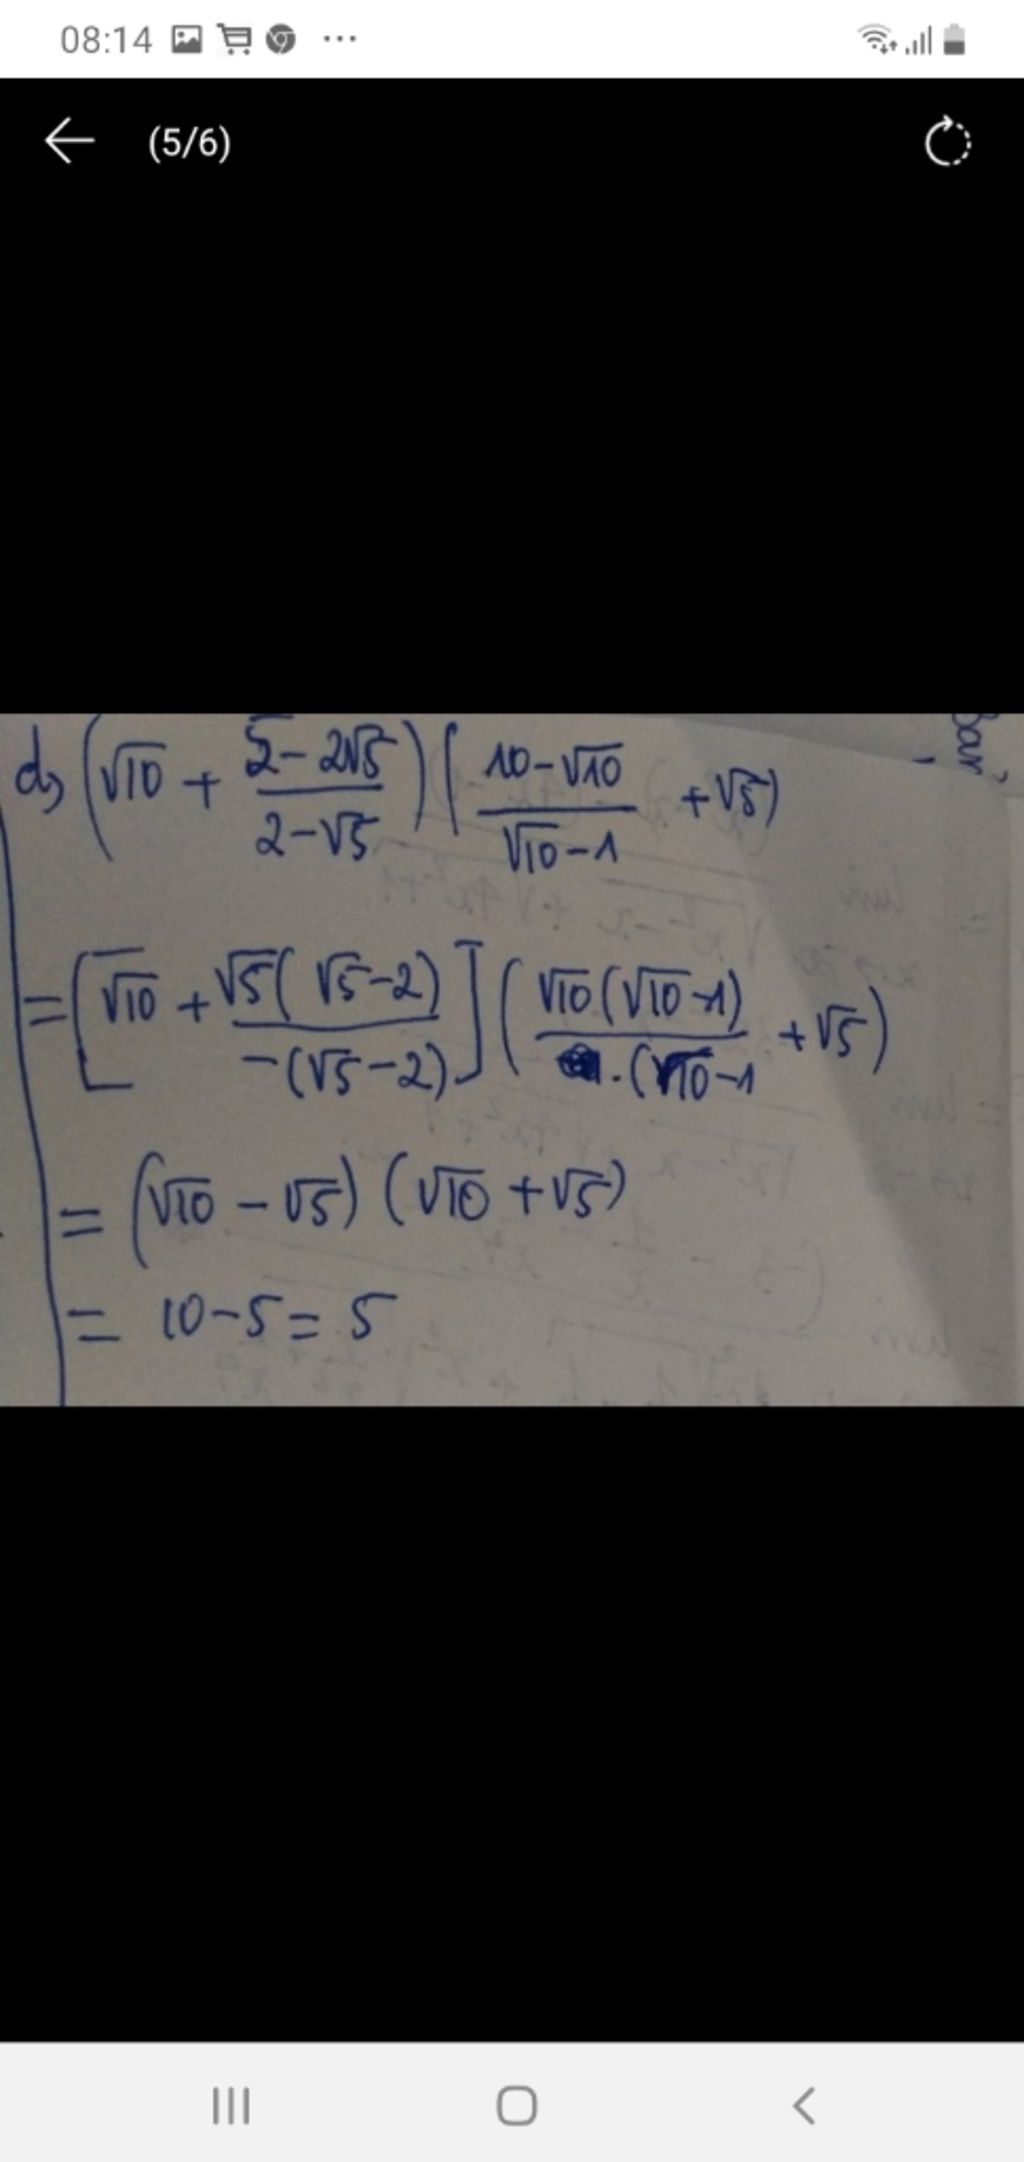 08:14
(5/6)
d) (√10 + (5-2√5)/(2-√5)) ((10-√10)/(√10-1) + √5)
= [√10 + √5(√5-2)/-(√5-2)] (√10(√10-1)/.(√10-1 + √5)
= (√10 - √5) (√10 + √5)
= 10-5 = 5